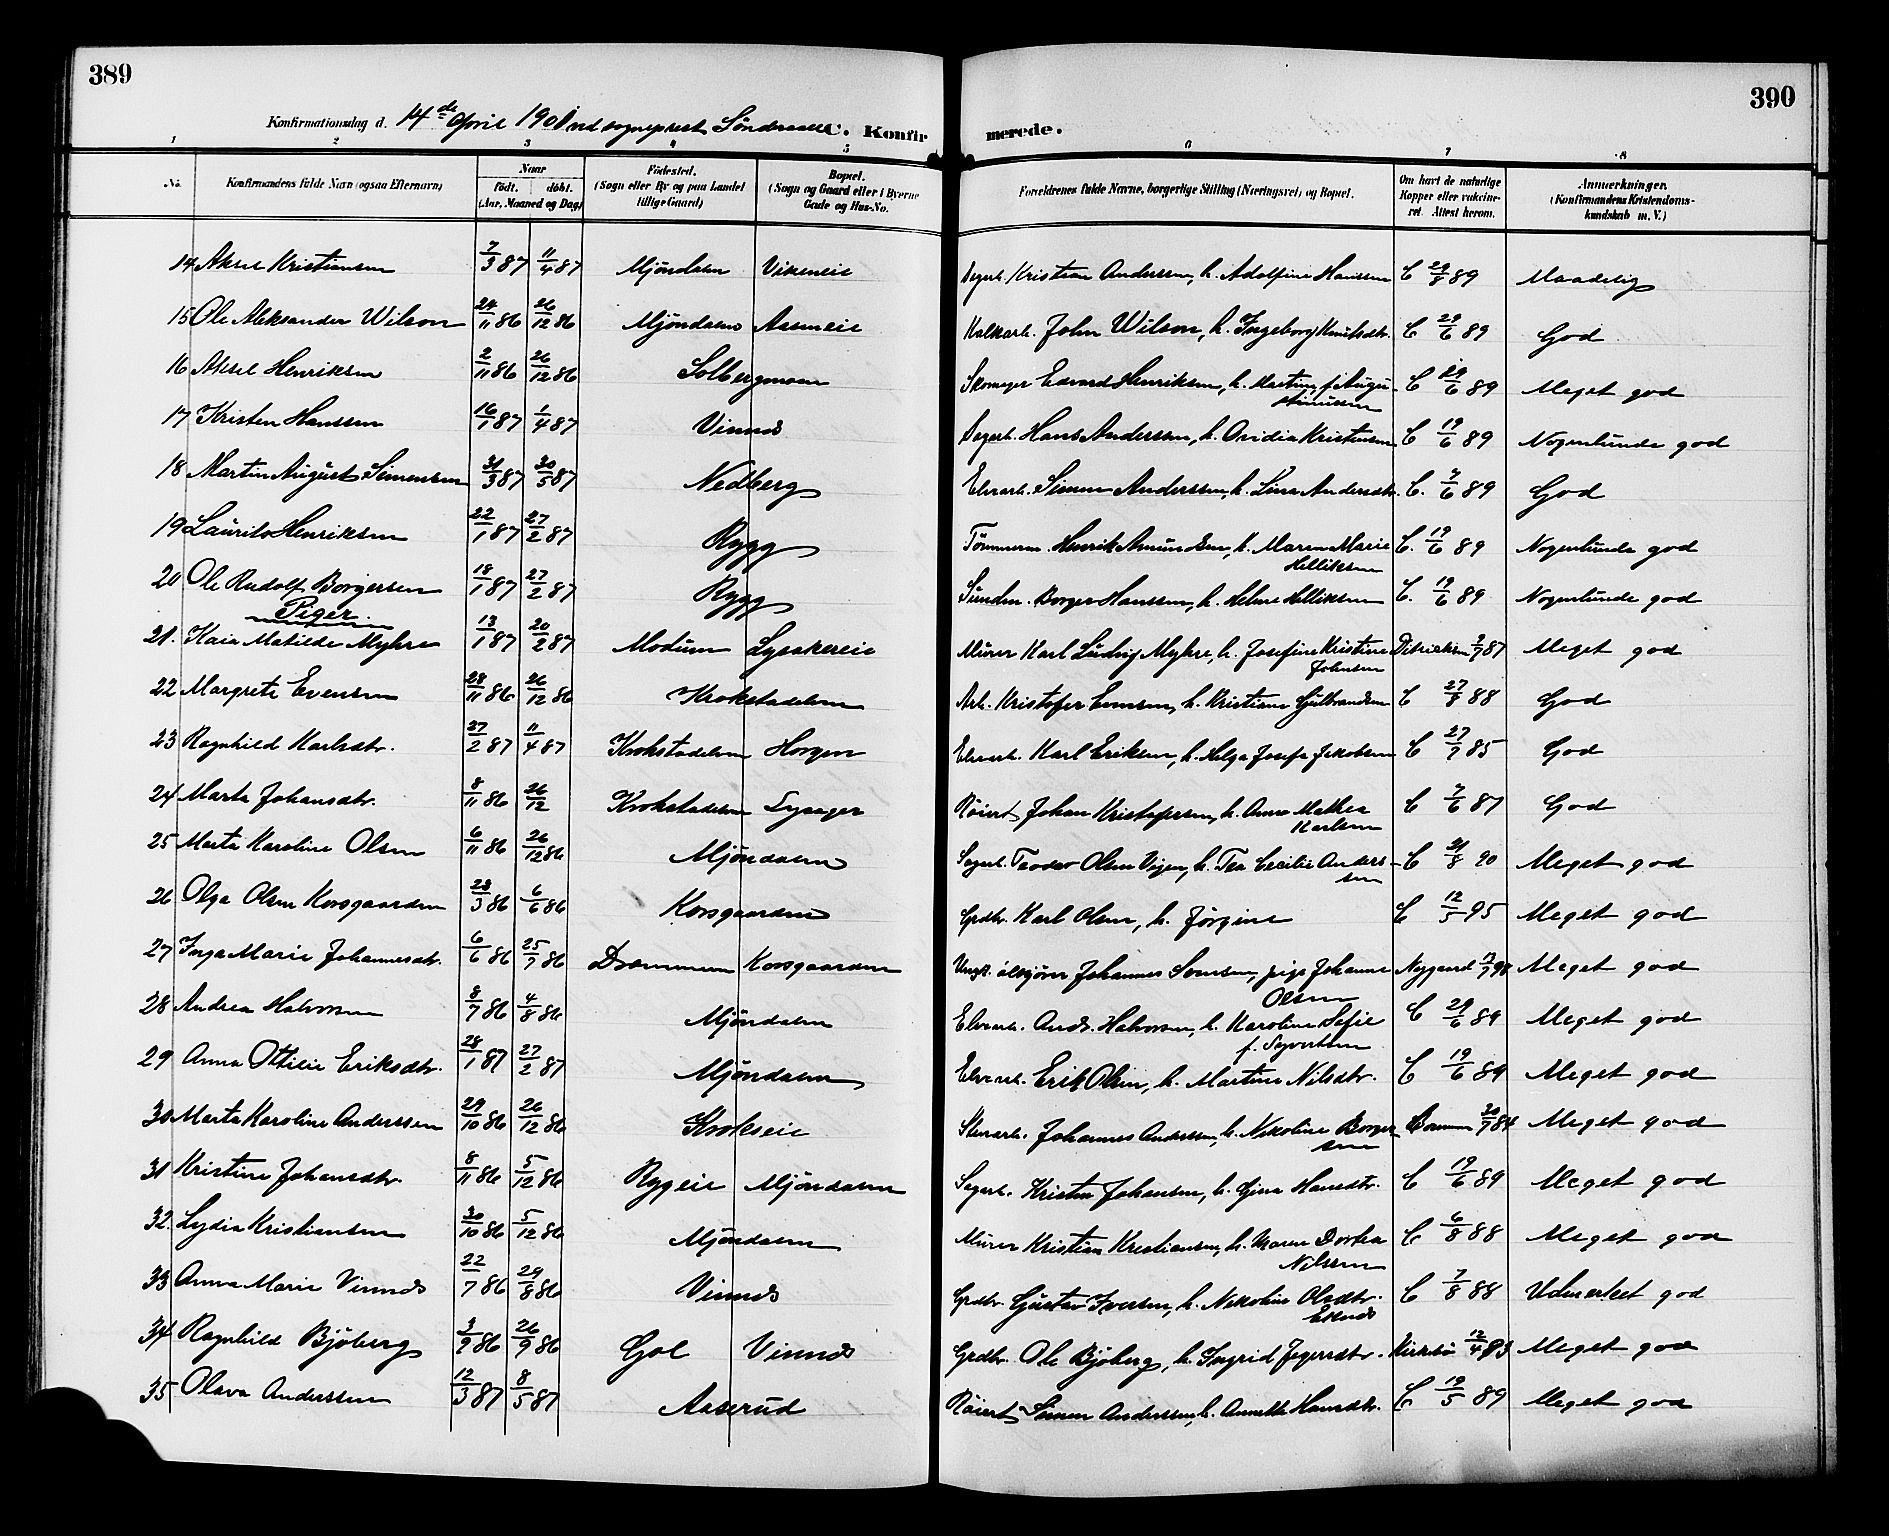 389
390
Konfirmationsdag d. 14de April 1901 ved sogneprest C. Konfir merede.
1 2 3 4 5 6 7 8
No. Konfirmandens fulde Navn (ogsaa Efternavn) Naar Født. døbt. (Aar, Maaned og Dag) Fødested. (Sogn eller By og paa Landet tillige Gaard) Bopæl. (Sogn og Gaard eller i Byerne Gade og Hus-No. Forældrenes fulde Navne, borgerlige Stilling (Næringsvei) og Bopæl. Om havt de naturlige Kopper eller vaccineret. Attest herom. Anmærkninger. (Konfirmandens Kristendomskundskab m. V.)
14 Aksel Kristiansen 7/3 87 11/4 87 Mjøndalen Vikeneie Sagarb. Kristian Anderssen, h. Adolfine Hanssen C 29/8 89 Maadelig
15 Ole Aleksander Wilson 24/11 86 26/12 86 Mjøndalen Aaseneie Kalkarb. John Wilson, h. Ingeborg Knutsdtr. C 29/6 89 God
16 Aksel Henriksen 2/11 86 26/12 86 Solbergmoen Skomager Edvard Henriksen, h. Martine f. Augustinussen C 29/6 89 Meget god
17 Kristen Hanssen 16/1 87 1/4 87 Vinnes Sagarb. Hans Anderssen, h. Ovidia Kristensen C 19/6 89 Nogenlunde god
18 Martin August Simensen 31/3 87 30/5 87 Nedberg Elvearb. Simen Anderssen, h. Lina Andersdtr. C. 7/6 89 God
19 Laurits Henriksen 22/1 87 27/2 87 Rygg Tømmerm. Henrik Amundsen, h. Maren Marie Helliksen C. 19/6 89 Nogenlunde god
20 Ole Rudolf Borgersen 18/1 87 27/2 87 Rygg Borger Hanssen, h. Helene Helliksen C. 19/6 89 Nogenlunde god
Piger.
21. Kaia Matilde Myhre 13/1 87 20/2 87 Modum Lysakereie Murer Karl Ludvig Myhre, h. Josefine Kristine Johnsen Ditriksen 2/7 87 Meget god
22 Margrete Evensen 28/11 86 26/12 86 Krokstadelven Arb. Kristofer Evensen, h. Kristiane Gulbrandsen C 27/8 88 God
23 Ragnhild Karlsdtr. 27/2 87 11/4 87 Krokstadelven Horgen Elvearb. Karl Eriksen, h. Helga Josefa Jakobsen C 27/7 85 God
24 Marta Johansdtr. 8/11 86 26/12 Krokstadelven Lysager Røiert Johan Kristofersen, h. Anne Mathea Karlsen C 7/6 87 God
25 Marta Karoline Olsen 6/11 86 26/12 86 Mjøndalen Sagarb. Teodor Olsen Vejen, h. Tea Cecilie Anderssen C 21/8 90 Meget god
26 Olga Olsen Korsgaarden 23/3 86 6/6 86 Korsgaarden Grdbr. Karl Olsen, h. Jørgine C 12/5 95 Meget god
27 Inga Marie Johannesdtr. 6/6 86 25/7 86 Drammen Korsgaarden Ungk. Johannes Svensen, pige Johanne Olsen Nygaard Meget god
28 Andrea Halvorsen 8/7 86 4/8 86 Mjøndalen Elvearb. Ands. Halvorsen, h. Karoline Sofie f. Syvertsen C 29/6 89 Meget god
29 Anna Ottilie Eriksdtr. 28/1 87 27/2 87 Mjøndalen Elvearb. Erik Olsen, h. Martine Nilsdtr. C 19/6 89 Meget god
30 Marta Karoline Anderssen 29/10 86 26/12 86 Krokseie Stenarb. Johannes Anderssen, h. Nikoline Borgersen 30/7 84 Meget god
31 Kristine Johansdtr. 8/11 86 5/12 86 Rygeie Mjøndalen Sagarb. Kristen Johansen, h. Gina Hansdtr. C 19/6 89 Meget god
32. Lydia Kristiansen 30/10 86 5/12 86 Mjøndalen Murer Kristian Kristiansen, h. Maren Dortea Nilssen C 6/8 88 Meget god
33 Anna Marie Vinnes 22/7 86 29/8 86 Vinnes Grdbr. Gustav Iversen, h. Nikoline Olsdtr. C 7/8 88 Udmerket god
34 Ragnhild Bjøberg 3/9 86 26/9 86 Gol Vinnes Grdbr. Ole Bjøberg, h. Ingrid Meget god
35 Olava Anderssen 12/3 87 8/5 87 Aaserud Røiert Simen Anderssen, h. Annette Hansdtr. C 19/5 89 Meget god